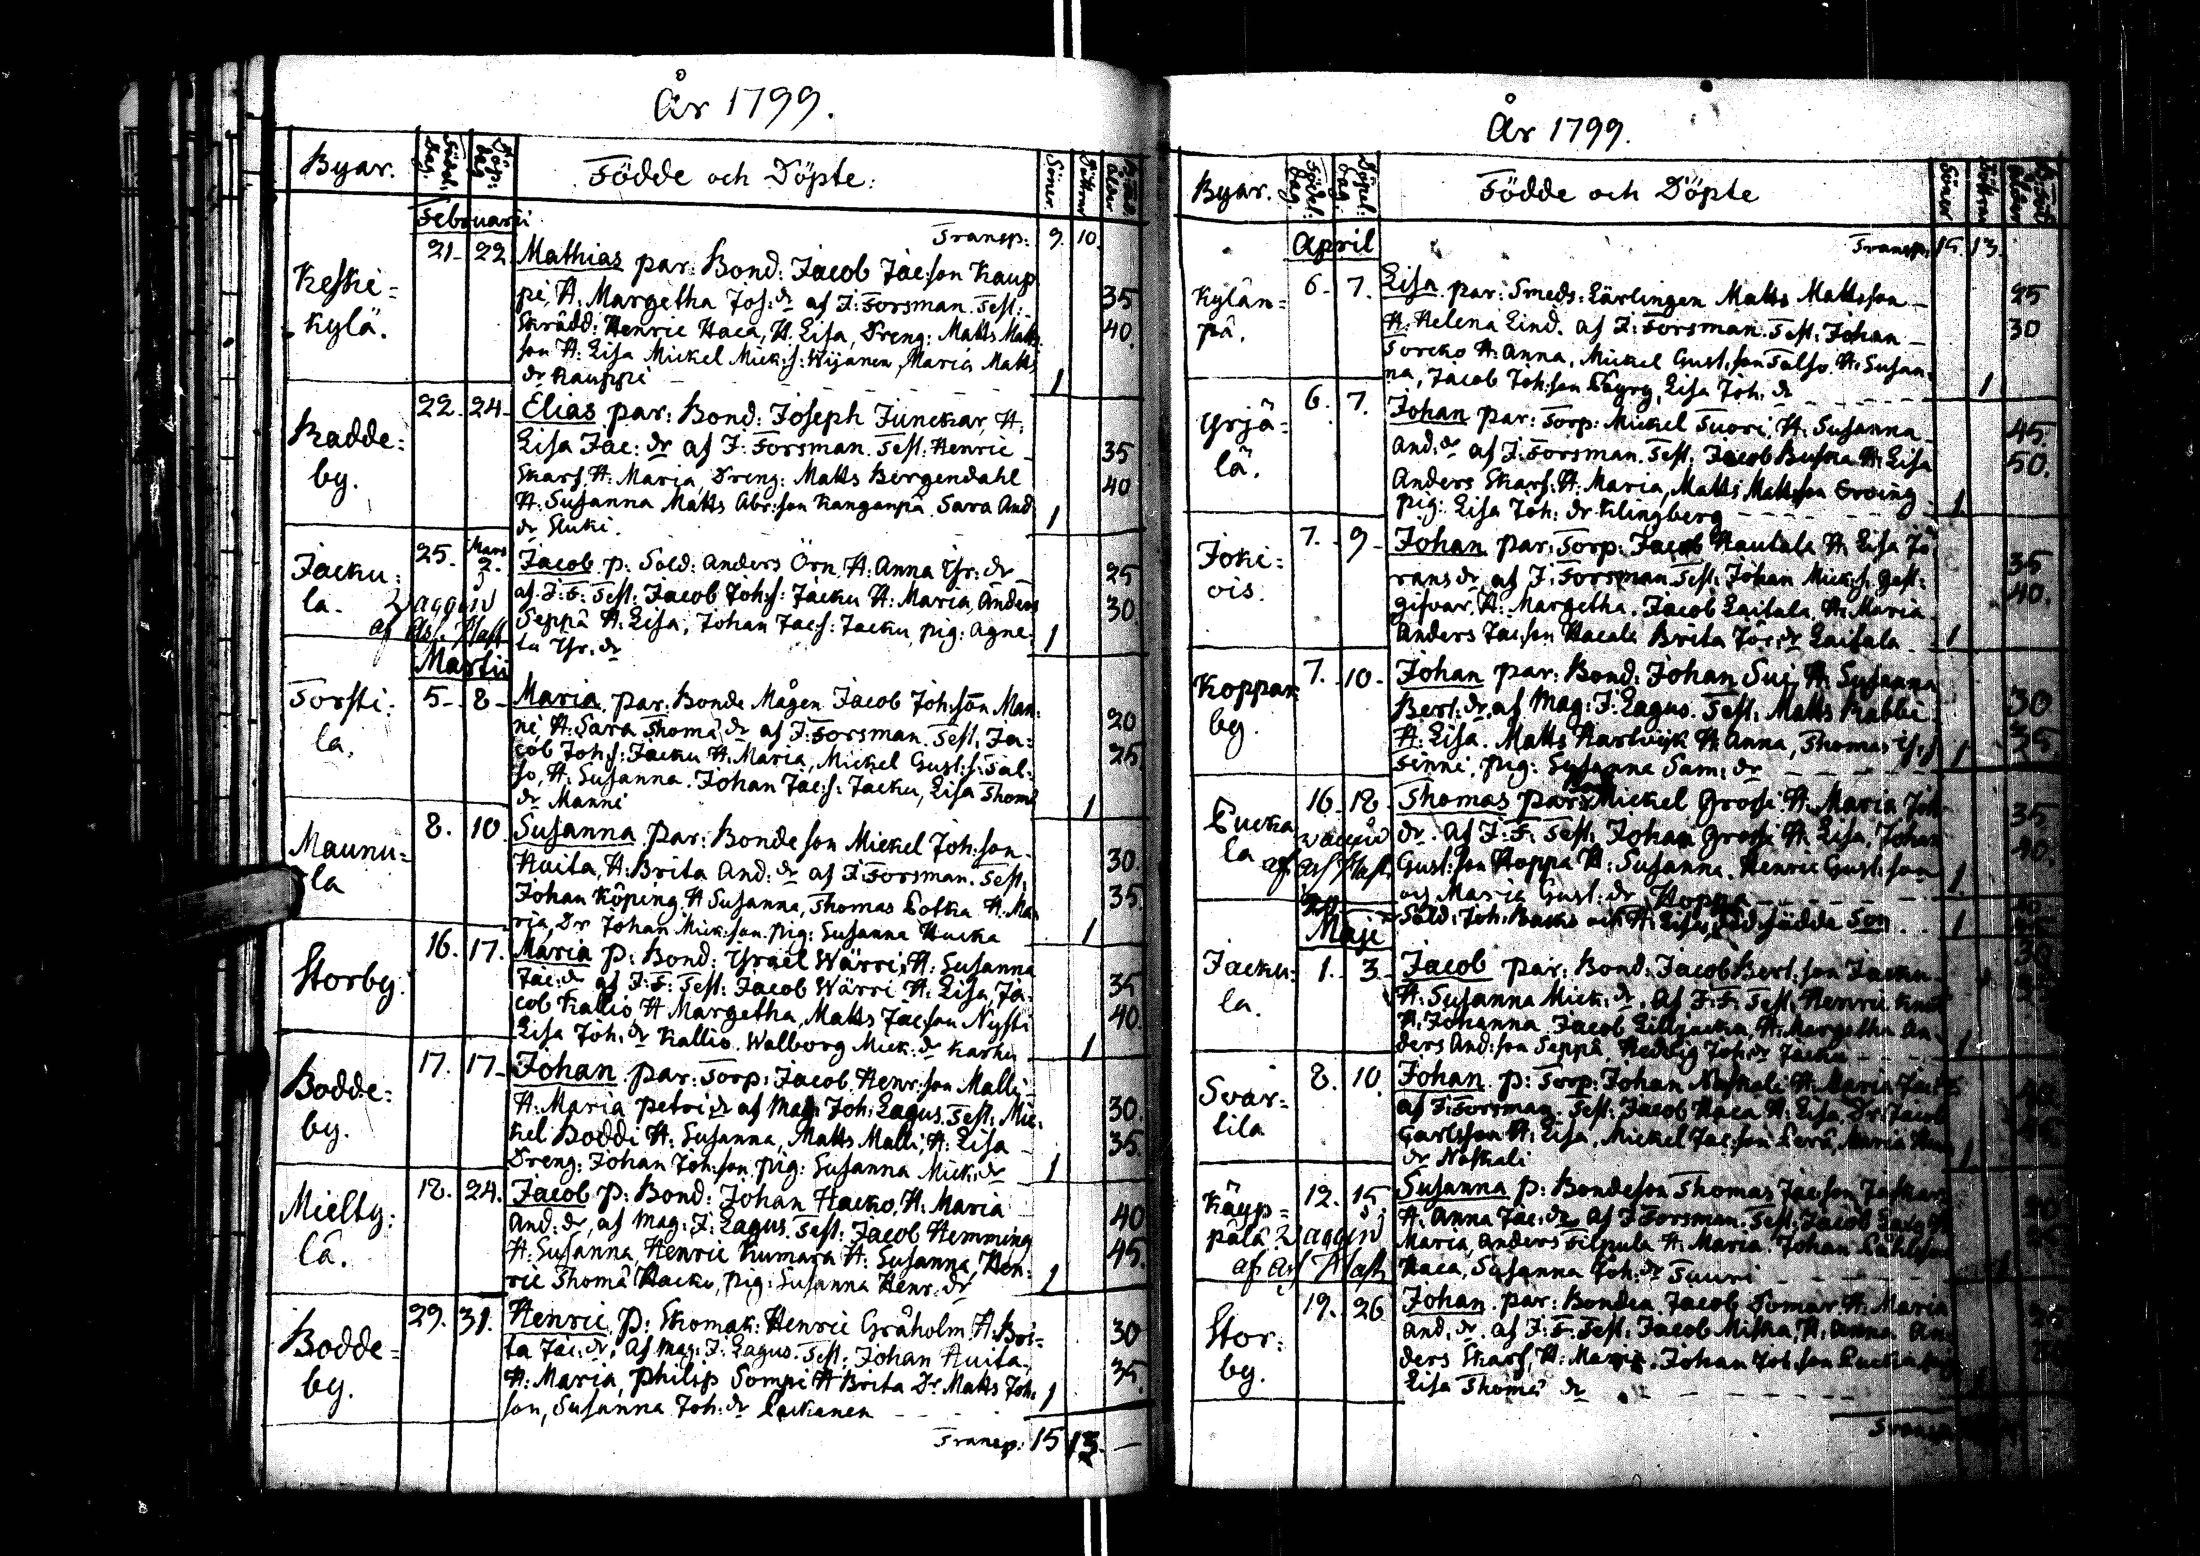 År 1799.
Byar.
Födel: dag.
Döp: dag
Födde och Döpte:
Söner
Döttrar
Februarii
Transp: 9. 10.
Keski=
kylä.
21- 22 Mathias par: Bond: Jacob Jac:son Kaup
pi, H: Margetha Joh: dr af J: Forsman. Test: 35
Skrädd: Henric Haca, H. Lisa, Dreng: Matts Matts 40.
son H: Lisa Mickel Mick:s: Wijanen, Maria Matts
dr Kauppi 1
Radde=
by.
22. 24. Elias par: Bond: Joseph Junckar, H:
Lisa Jac: dr af J: Forsman. Test. Henric 35
Skarf, H: Maria, Dreng: Matts Bergendahl 40
H. Susanna Matts Abr:son Kanganpä, Sara And 1
dr
Jacku:
la.
25. Mars 2. Jacob p: Sold: Anders Örn, H: Anna Thr: dr 25
af J: F: Test: Jacob Joh:s: Jacku H: Maria, Anders 30.
Seppä H: Lisa, Johan Jac:s: Jacku, pig: Agne 1
ta Thr. dr
Martii
Torsti:
la.
5- 8- Maria, par: Bonde Mågen Jacob Joh:son Man
ni, H: Sara Thoma dr af J: Forsman. Test, Ja= 20
cob Joh:s: Jacku H: Maria, Mickel Gust:s: Tal= 25
so, H: Susanna. Johan Jac:s: Jacku, Lisa Thoma
dr Manni 1
Maunu=
la
8. 10. Susanna par: Bondeson Mickel Joh:son
Huita, H: Brita And: dr af J Forsman. Test, 30.
Johan Köping, H Susanna, Thomas Lotka H: Ma 35.
ria, Dr Johan Mick:son. pig: Susanna Hucka 1
Storby.
16. 17. Maria p: Bond: Israel Wärri, H: Susanna
Jac: dr af J: F: Test: Jacob Wärri H: Lisa, Ja 35
cob Kallio H Margetha, Matts Jacson Nysti 40.
Lisa Joh. dr Kallio. Walborg Mick: dr Karhu 1
Bodde=
by.
17. 17- Johan. par: Torp: Jacob. Henr:son Malli
H: Maria petri dr af Mag: Joh: Lagus. Test: Mic 30.
kel Boddi H: Susanna, Matts Malli, H: Lisa 35.
Dreng: Johan Joh:son, pig: Susanna Mick: dr 1
Mielty:
lä.
18. 24. Jacob p: Bond: Johan Hacko, H: Maria
And: dr, af Mag: J: Lagus. Test: Jacob Hemming 40
H: Susanna, Henric Kumara H: Susanna, Hen: 45.
ric Thomä Hacko, pig: Susanna Henr: dr 1
Bodde=
by.
29. 31. Henric, p: Skomak: Henric Gråholm, H: Bri=
ta Jac: dr, af Mag: J: Lagus. Test: Johan Huita. 30
H: Maria, Philip Sompi H Brita Dr Matts Joh: 35.
son, Susanna Joh: dr Lackanen 1
Transp: 15 13. —
År 1799.
Byar.
Födel: dag.
Döpel: dag:
Födde och Döpte
Söner
April
Transp: 15. 13.
Kylän=
pä.
6. 7. Lisa par: Smeds: Lärlingen Matts Mattsson 25
H: Helena Lind. af J: Forsman. Test: Johan 30
Torcko H: Anna, Mickel Gust:son Talso. H: Susan
na, Jacob Joh:son Löyry, Lisa Joh. dr 1
Yrjä=
lä.
6. 7. Johan par: Torp: Mickel Tuori, H: Susanna 45.
And. dr af J: Forsman. Test. Jacob H: Lisa 50.
Anders Skarf. H: Maria, Matts Mattsson
pig: Lisa Joh: dr Klingberg 1
Joki=
ois.
7. 9- Johan par: Torp: Jacob Rautala H: Lisa Jö
rans dr, af J. Forsman. Test: Johan Mick:s. Gest= 35
gifvar, H: Margetha. Jacob Laitala, H: Maria 40.
Anders Jacson Haeala Brita Jör: dr Laitala 1
Koppar
by.
7. 10- Johan par: Bond: Johan Sui, H: Susanna
Bert: dr, af Mag: J: Lagus. Test: Matts Kabbi 30
H: Lisa. Matts Hartvijk H: Anna, Thomas
Finni, pig: Susanna Sam: dr 1
Pucka
la
16. 18. Thomas par: Bond Mickel Grossi H: Maria Joh:
dr. af J: F: Test: Johan Grossi H: Lisa, Johan 35
Gust:son Hoppa H: Susanna. Henric Gust:son 40.
och Maria Gust: dr Hoppa 1
Sold: Joh: Backs och H: Lisas, död födda Son 1
Maji
Jacku:
la.
1. 3- Jacob par: Bond: Jacob Bert:son Jacku
H: Susanna Mick: dr, af J: F: Test. Henric
H: Johanna. Jacob Lilljacka H: Margetha An
ders And:son Seppä, Hedvig Joh: dr Jacku 1
Svar=
tila
8. 10. Johan p: Torp: Johan Naskali H: Maria Jac
af J: Forsman. Test: Jacob Haca H: Lisa Dr Jacob
Carlsson H: Lisa, Mickel Jac:son Perä, Maria
dr Naskali 1
Käyp=
pälä
12. 15 Susanna p: Bondeson Thomas Jacson Jaskar
H: Anna Jac: dr af J Forsman. Test: Jacob
Maria, Anders Filpula H: Maria. Johan
Haca, Susanna Joh: dr Tuuri
Stor:
by.
19. 26 Johan. par: Bonden Jacob Somar H: Maria
And. dr. af J: F: Test. Jacob Miska, H: Anna An
ders Skarf, H: Maria. Johan Joh:son
Lisa Thomä dr